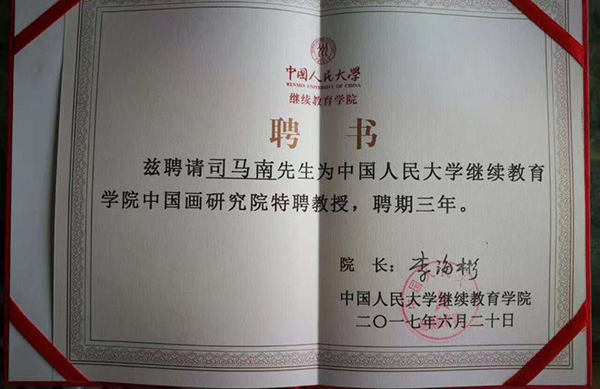 中国人民大学
RENMIN UNIVERSITY OF CHINA
继续教育学院
聘 书
兹聘请司马南先生为中国人民大学继续教育
学院中国画研究院特聘教授，聘期三年。
院 长：李海彬
中国人民大学继续教育学院
二〇一七年六月二十日